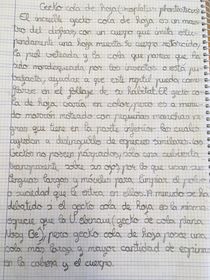 Gecko cola de hoja (uroplatus phantasticus)
El increíble gecko cola de hoja es un maes-
tro del disfraz, con un cuerpo que imita
perfectamente una hoja muerta. Su cuerpo retorcido,
la piel veteada y la cola que parece que ha
sido mordisqueada por los insectos
ayudar a que este reptil pueda camu-
flarse en el follaje de su hábitat. El gecko co-
la de hoja varía en color, pero es a menu-
do marrón moteado con pequeñas manchas ne-
gras que tiene en la parte inferior las cuales
ayudan a distinguirlos de especies similares. Los
geckos no poseen párpados, solo una cubierta
transparente sobre sus ojos, por lo que usan sus
lenguas largas y móviles para limpiar el pol-
vo que le entra en ellos. A menudo se ha
debatido si el gecko cola de hoja es la misma
especie que la U. ebenaui (gecko de cola plana
), pero gecko cola de hoja posee una
cola más larga y mayor cantidad de espinas
en la cabeza y el cuerpo.